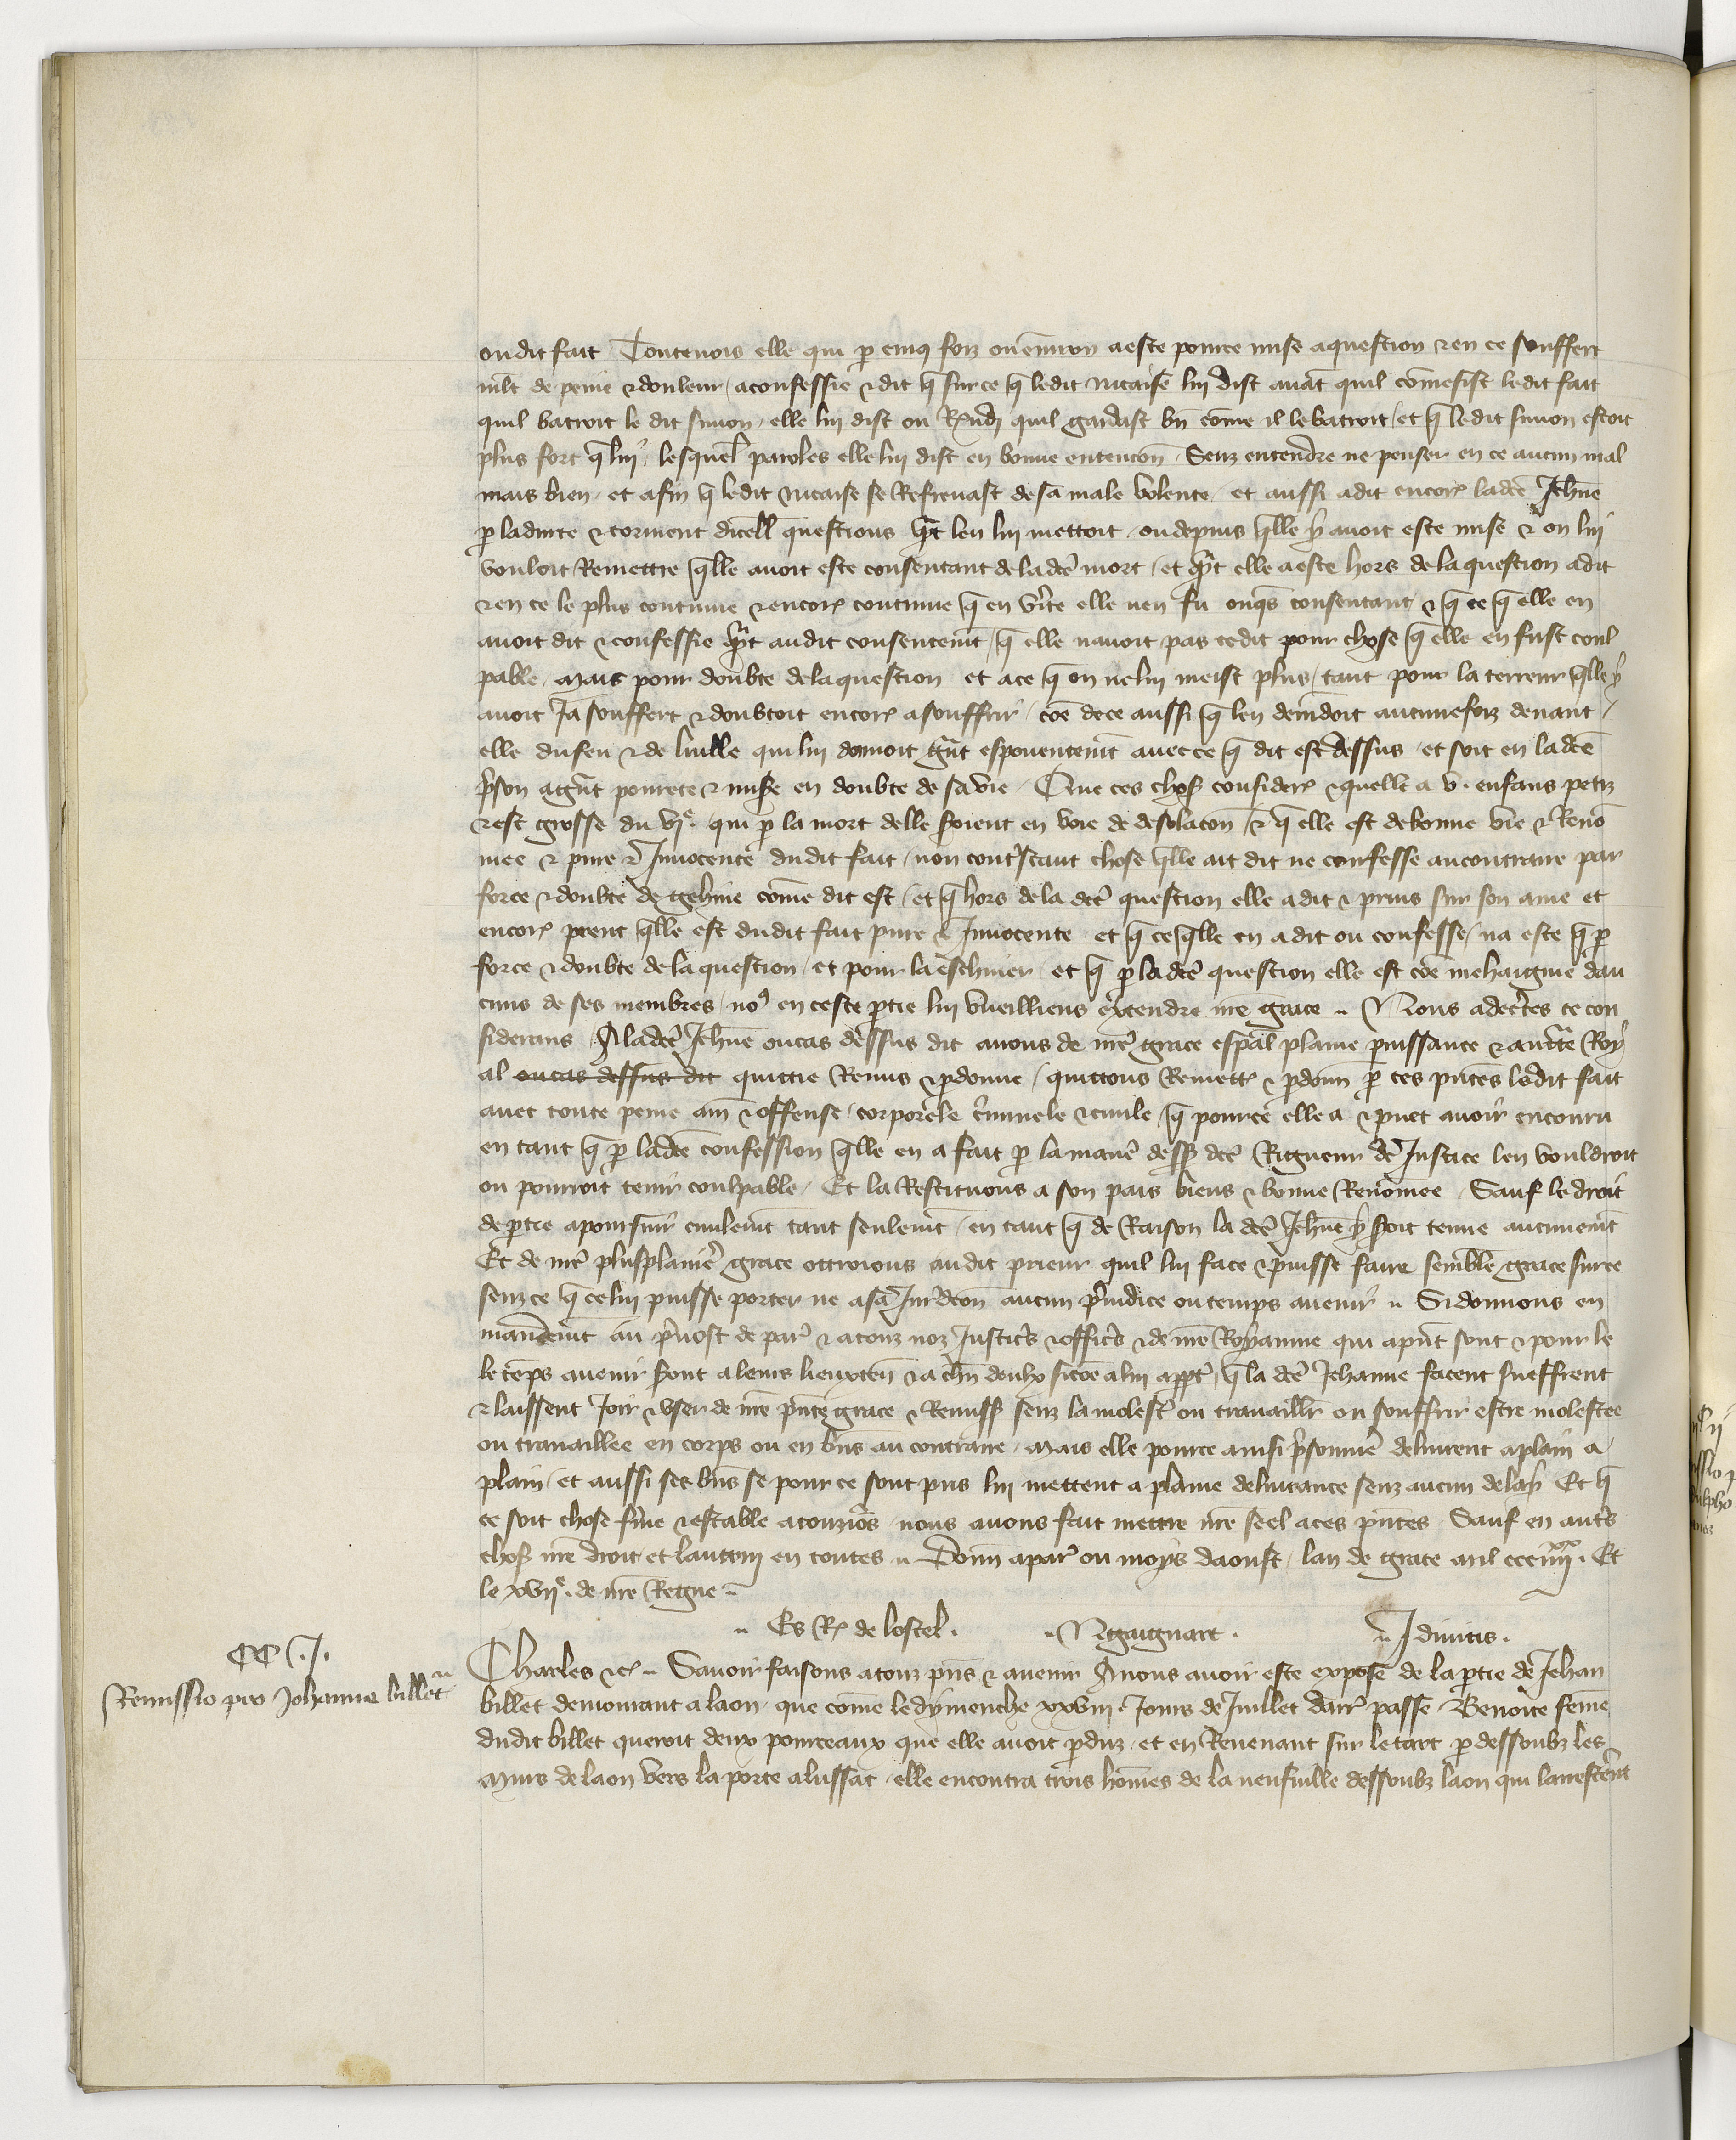 ou dit fait Toutevois elle qui p̲ cinq foiz ou environ a este pource mise a question ⁊ en ce souffert
mlt̄ de peine ⁊ douleur / a confessie ⁊ dit q̄ sur ce q̄ ledit nicaise lui dist avāt quil cōmesist ledit fait
quil batroit le dit simon / elle lui dist ou Rn̄di quil gardast bn̄ cōme il le batroit / et q̄ ledit simon estoit
plus fort q̄ lui / lesquel̄ paroles elle lui dist en bonne entencōn / Senz entendre ne penser en ce aucun mal
mais bien / et afin q̄ ledit nicaise se Refrenast de sa male volente / et aussi a dit encor̄ ladc̄e Jeh̄ne
p̲ ladurte ⁊ torment dicell̄ questions qn̄t len lui mettoit / ou depuis q̄lle y avoit este mise ⁊ on lui
vouloit Remettre q̄lle avoit este consentant de la dc̄e mort / et qn̄t elle a este hors de la question a dit
⁊ en ce le plus continue ⁊ encor̄ continue q̄ en v̄ite elle nen fu onq̄s consentant / ⁊ q̄ ce q̄ elle en
avoit dit ⁊ confessie qn̄t audit consentem̄t / q̄ elle navoit pas ce dit pour chose q̄ elle en fust coul
pable / mais pour doubte de la question et a ce q̄ on ne lui meist plus / tant pour la terreur q̄lle y
avoit Ja souffert ⁊ doubtoit encor̄ a souffrir / cōe de ce aussi q̄ len demēdoit aucunefoiz devant /
elle du feu ⁊ de luille qui lui donnoit gn̄t espouentem̄t avec ce q̄ dit est dessus / et soit en la dc̄e
p̄son a gn̄t povrete ⁊ mise en doubte de sa vie / Que ces chos̄ consider̄ ⁊ quelle a v. enfans petiz
⁊ est grosse du vj.e qui p̲ la mort delle s̄oient en voie de desolacōn / ⁊ q̄ elle est de bonne vie ⁊ Renō
mee ⁊ pure ⁊ Innocente dudit fait / non cont̄stant chose q̄lle ait dit ne confesse au contraire par
force ⁊ doubte de gehine cōme dit est / et q̄ hors de la dc̄e question elle a dit ⁊ prins sur son ame et
encor̄ prent q̄lle est dudit fait pure ⁊ Innocente et q̄ ce q̄lle en a dit ou confesse / na este q̄ p̲
force ⁊ doubte de la question / et pour la eschiver / et q̄ p̲ la dc̄e question elle est cōe mehaignie dau
cuns de ses membres / no9 en ceste p̲tie lui vueilliens extendre nr̄e grace .. Nous adecertes ce con
siderans / A la dc̄e Jeh̄ne ou cas dessus dit avons de nr̄e grace esp̄al plaine puissance ⁊ auct̄te Roy
al ou cas dessus dit quittie Remis ⁊ p̲donne / quittons Remett̄ ⁊ p̲donn̄ p̲ ces pn̄tes ledit fait
avec toute peine am̄ ⁊ offense / corporele c̄minele ⁊ civile / q̄ pource elle a ⁊ puet avoir encouru
en tant q̄ p̲ ladc̄e confession q̄lle en a fait p̲ la mane dess̄ dc̄e Rigueur de Justice len vouldroit
ou pourroit tenir coulpable / Et la Restituons a son pais biens ⁊ bonne Renomee / Sauf le droit
de p̲tie a poursuir civilem̄t tant seulem̄t / en tant q̄ de Raison la dc̄e Jeh̄ne y s̄oit tenue aucunem̄t
Et de nr̄e plus planie grace ottroions audit prieur quil lui face ⁊ puisse faire semble grace sur ce
senz ce q̄ ce lui puisse porter ne a sa Jur̄dcōn aucun p̄iudice ou temps avenir .. Si donnons en
mandem̄t au p̄vost de par̄ ⁊ a touz noz Justic̄s ⁊ offic̄s ⁊ de nr̄e Royaume qui apn̄t sont ⁊ pour le
le tēps avenir s̄ont a leurs lieuxten̄ ⁊ a ch̄un deulx sicōe a lui app̲t̄ / q̄ la dc̄e Jehanne facent sueffrent
⁊ laissent Joir ⁊ user de nr̄e pn̄te grace ⁊ Remiss̄ senz la molest̄ ou travaillr̄ ou souffrir estre molestee
ou travaillee en corps ou en bn̄s au contraire / mais elle pource ainsi p̄sonnie delivrent a plain a
plain / et aussi ses bn̄s se pour ce sont pris lui mettent a plaine delivrance senz aucun delay Et q̄
ce soit chose f̄me ⁊ estable a touziō̄s nous avons fait mettre nr̄e seel a ces pn̄tes Sauf en aut̄s
chos̄ nr̄e droit et lautrui en toutes .. Donn̄ a par̄ ou moys daoust / lan de grace mil ccc iiijxx. Et
le xvije. de nr̄e Regne ..
.. Es R̄ de lostel . .. N gaignart . .. J divitis .
CC.J.
Remissio pro Johanne billet ..
Charles ⁊c̄ .. Savoir faisons a touz pn̄s ⁊ avenir A nous avoir este expose de la p̲tie de Jehan
billet demorant a laon / que cōme le dymenche xxviije. Jours de Juillet darr̄ passe / Benoite fēme
dudit billet queroit deux pourceaux que elle avoit p̲duz / et en Revenant sur le tart p̲ dessoubz les
murs de laon vers la porte a lussat / elle encontra trois hōmes de la neufville dessoubz laon qui larrest̄ent